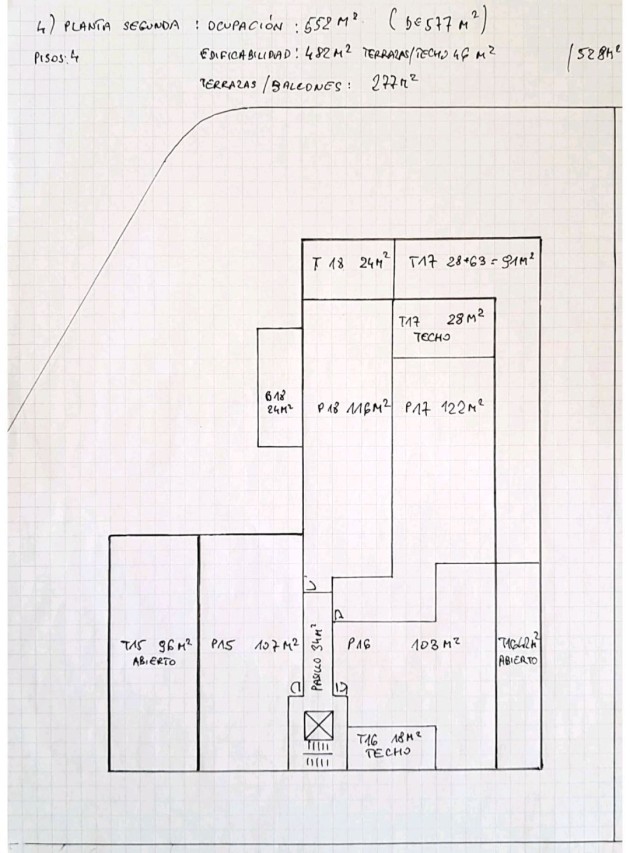 4) PLANTA SEGUNDA : OCUPACIÓN : 552 M² (DE 577 M²)
PISOS: 4 EDIFICABILIDAD: 482 M² TERRAZAS/TECHO 46 M² /528M²
TERRAZAS / BALCONES: 277M²
T 18 24M² T17 28+63 = 91M²
T17 28M²
TECHO
B18
24M²
P18 116M² P17 122M²
T15 96M²
ABIERTO
P15 107M²
PASILLO 34M²
P16 103M²
T16 42M²
ABIERTO
T16 18M²
TECHO